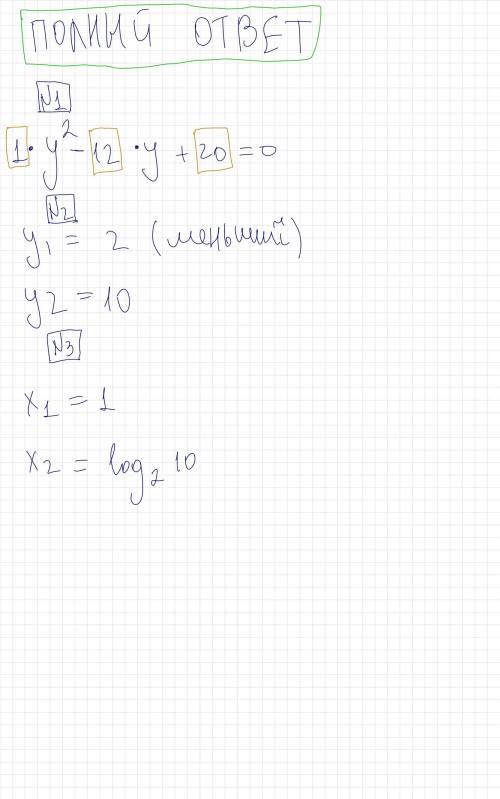 ПОЛНЫЙ ОТВЕТ
N1
1·y² - 12·y + 20 = 0
N2
y₁ = 2 (меньший)
y2 = 10
N3
x₁ = 1
x₂ = log₂ 10